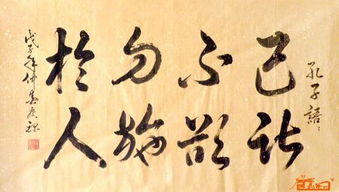 孔子语
己所
不欲
勿施
於人
戊子年仲夏